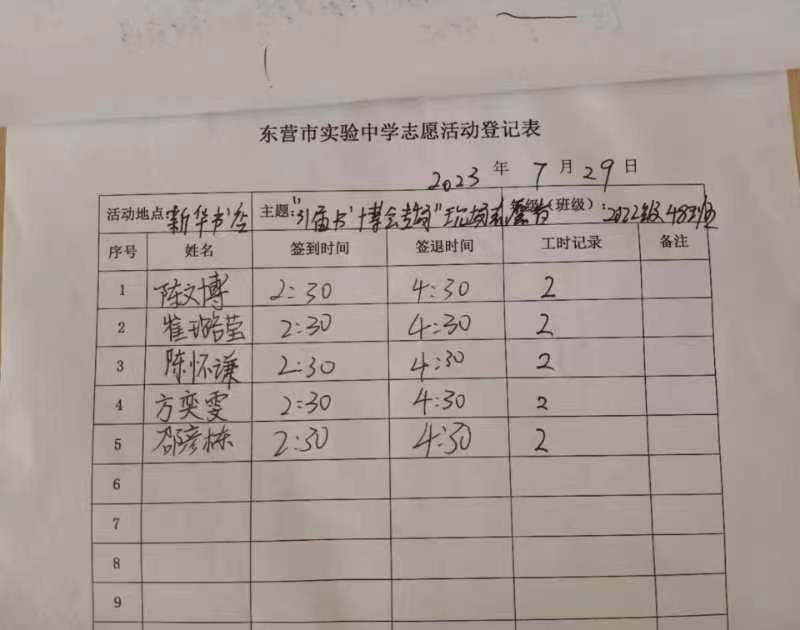 东营市实验中学志愿活动登记表
2023 年 7 月 29 日
活动地点:新华书店 主题: 书博会 (班级):2022级48班
序号 姓名 签到时间 签退时间 工时记录 备注
1 陈文博 2:30 4:30 2
2 崔璐莹 2:30 4:30 2
3 陈怀谦 2:30 4:30 2
4 方奕雯 2:30 4:30 2
5 邵彦栋 2:30 4:30 2
6
7
8
9